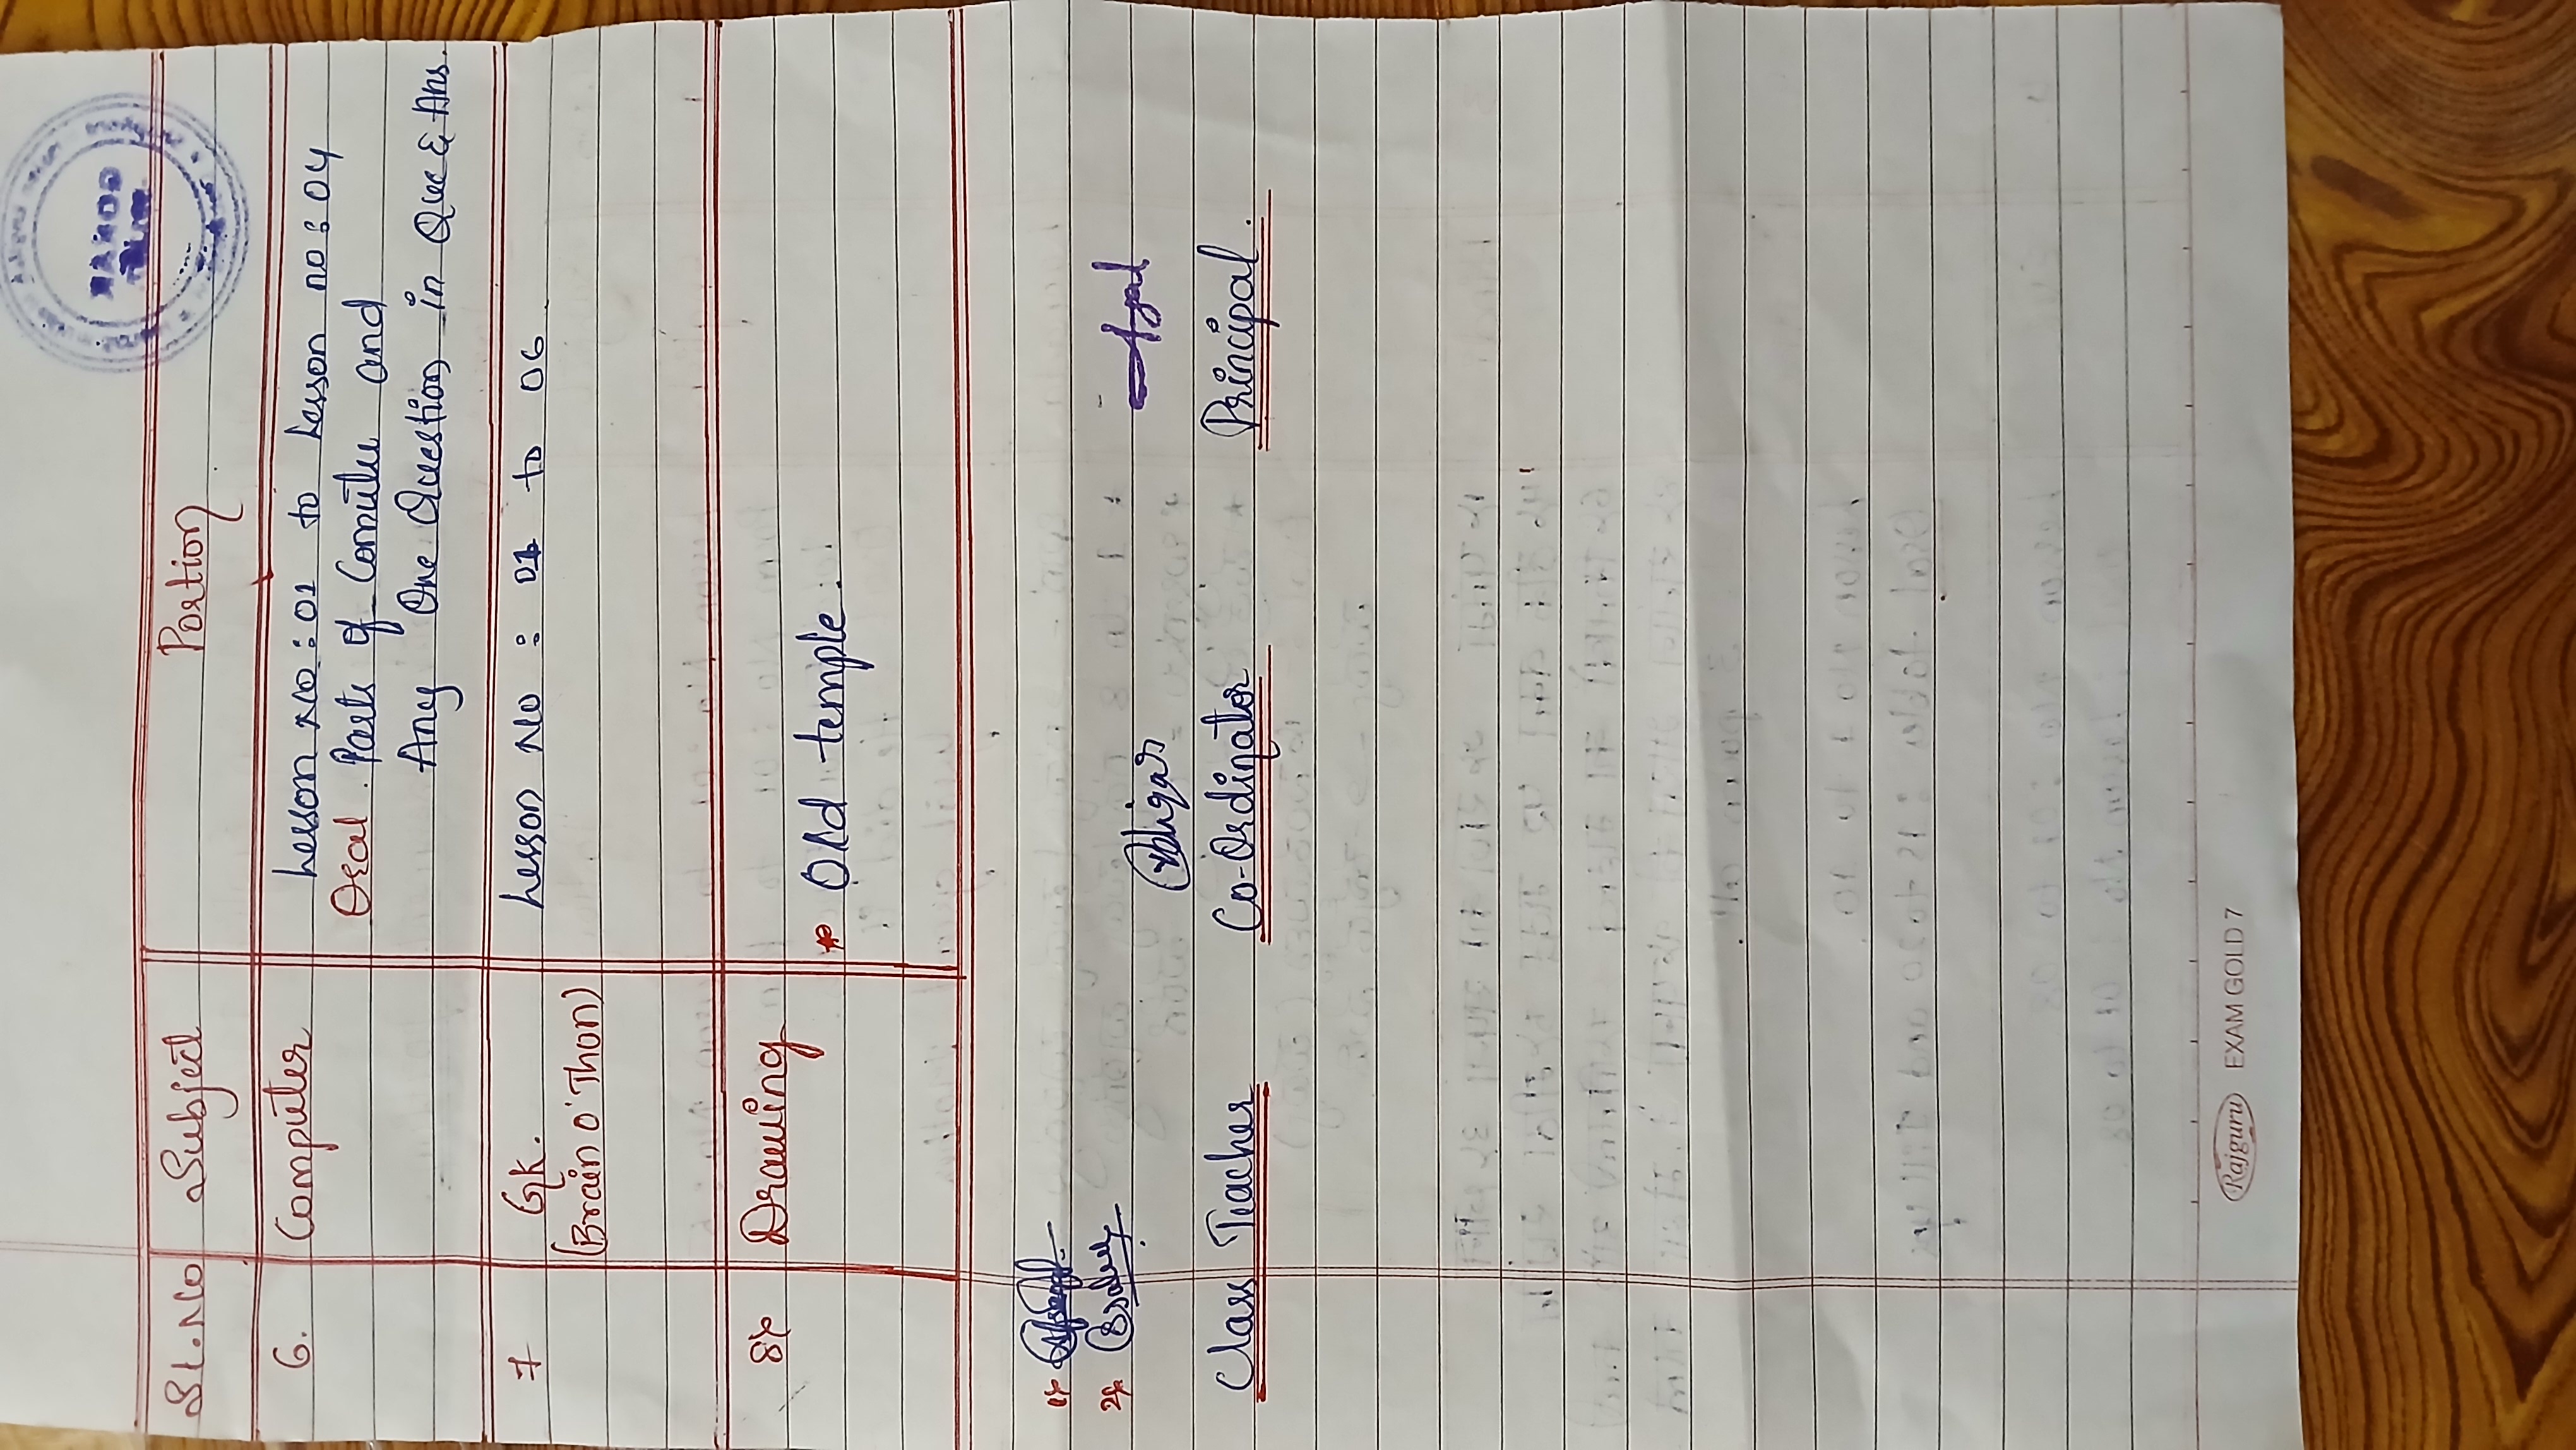 Sl.No Subject Portion
6. Computer Lesson No : 01 to Lesson no : 04
Oral. Parts of Comuter and
Any One Question in Que & Ans.
7 Gk. Lesson No : 01 to 06
(Brain O' Thon)
8 Drawing * Old temple.
1
2
Class Teacher Co-Ordinator Principal.
Rajguru EXAM GOLD 7